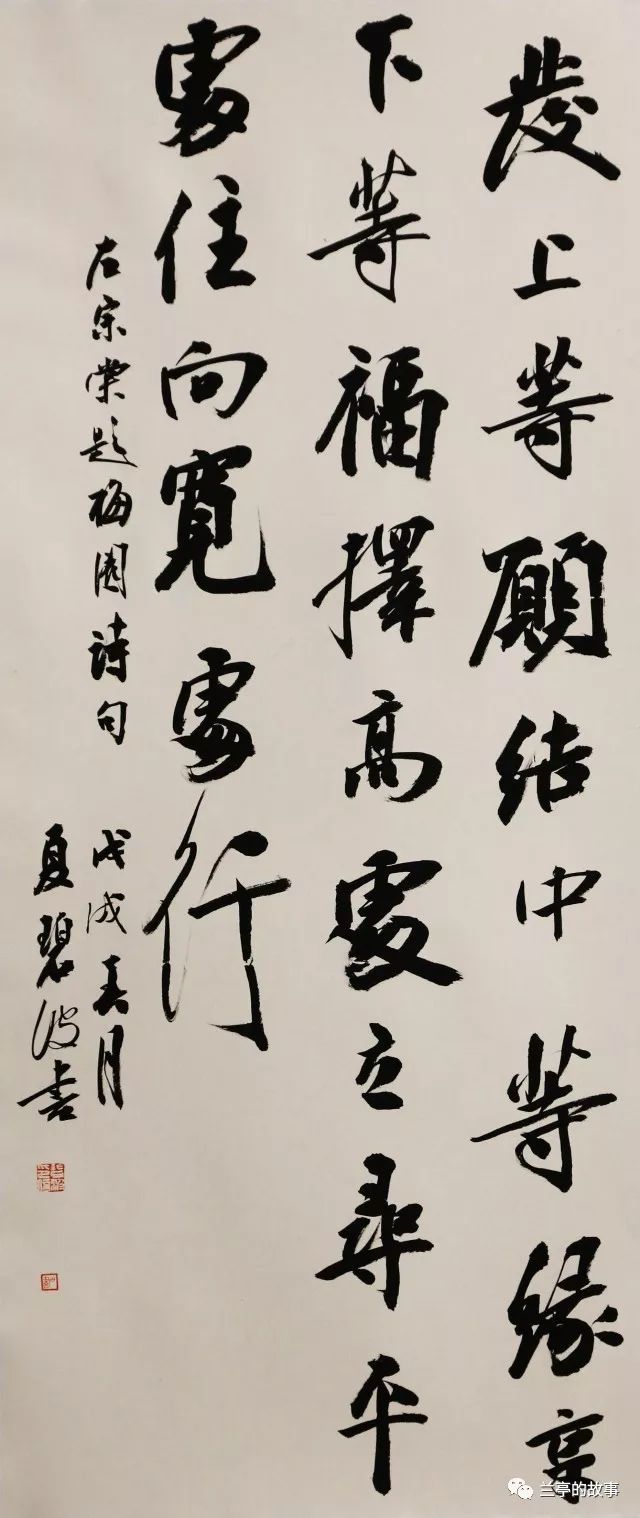 發上等願結中等緣享
下等福擇高處立尋平
處住向寬處行
左宗棠題梅園詩句
戊戌春月
夏碧波書
兰亭的故事